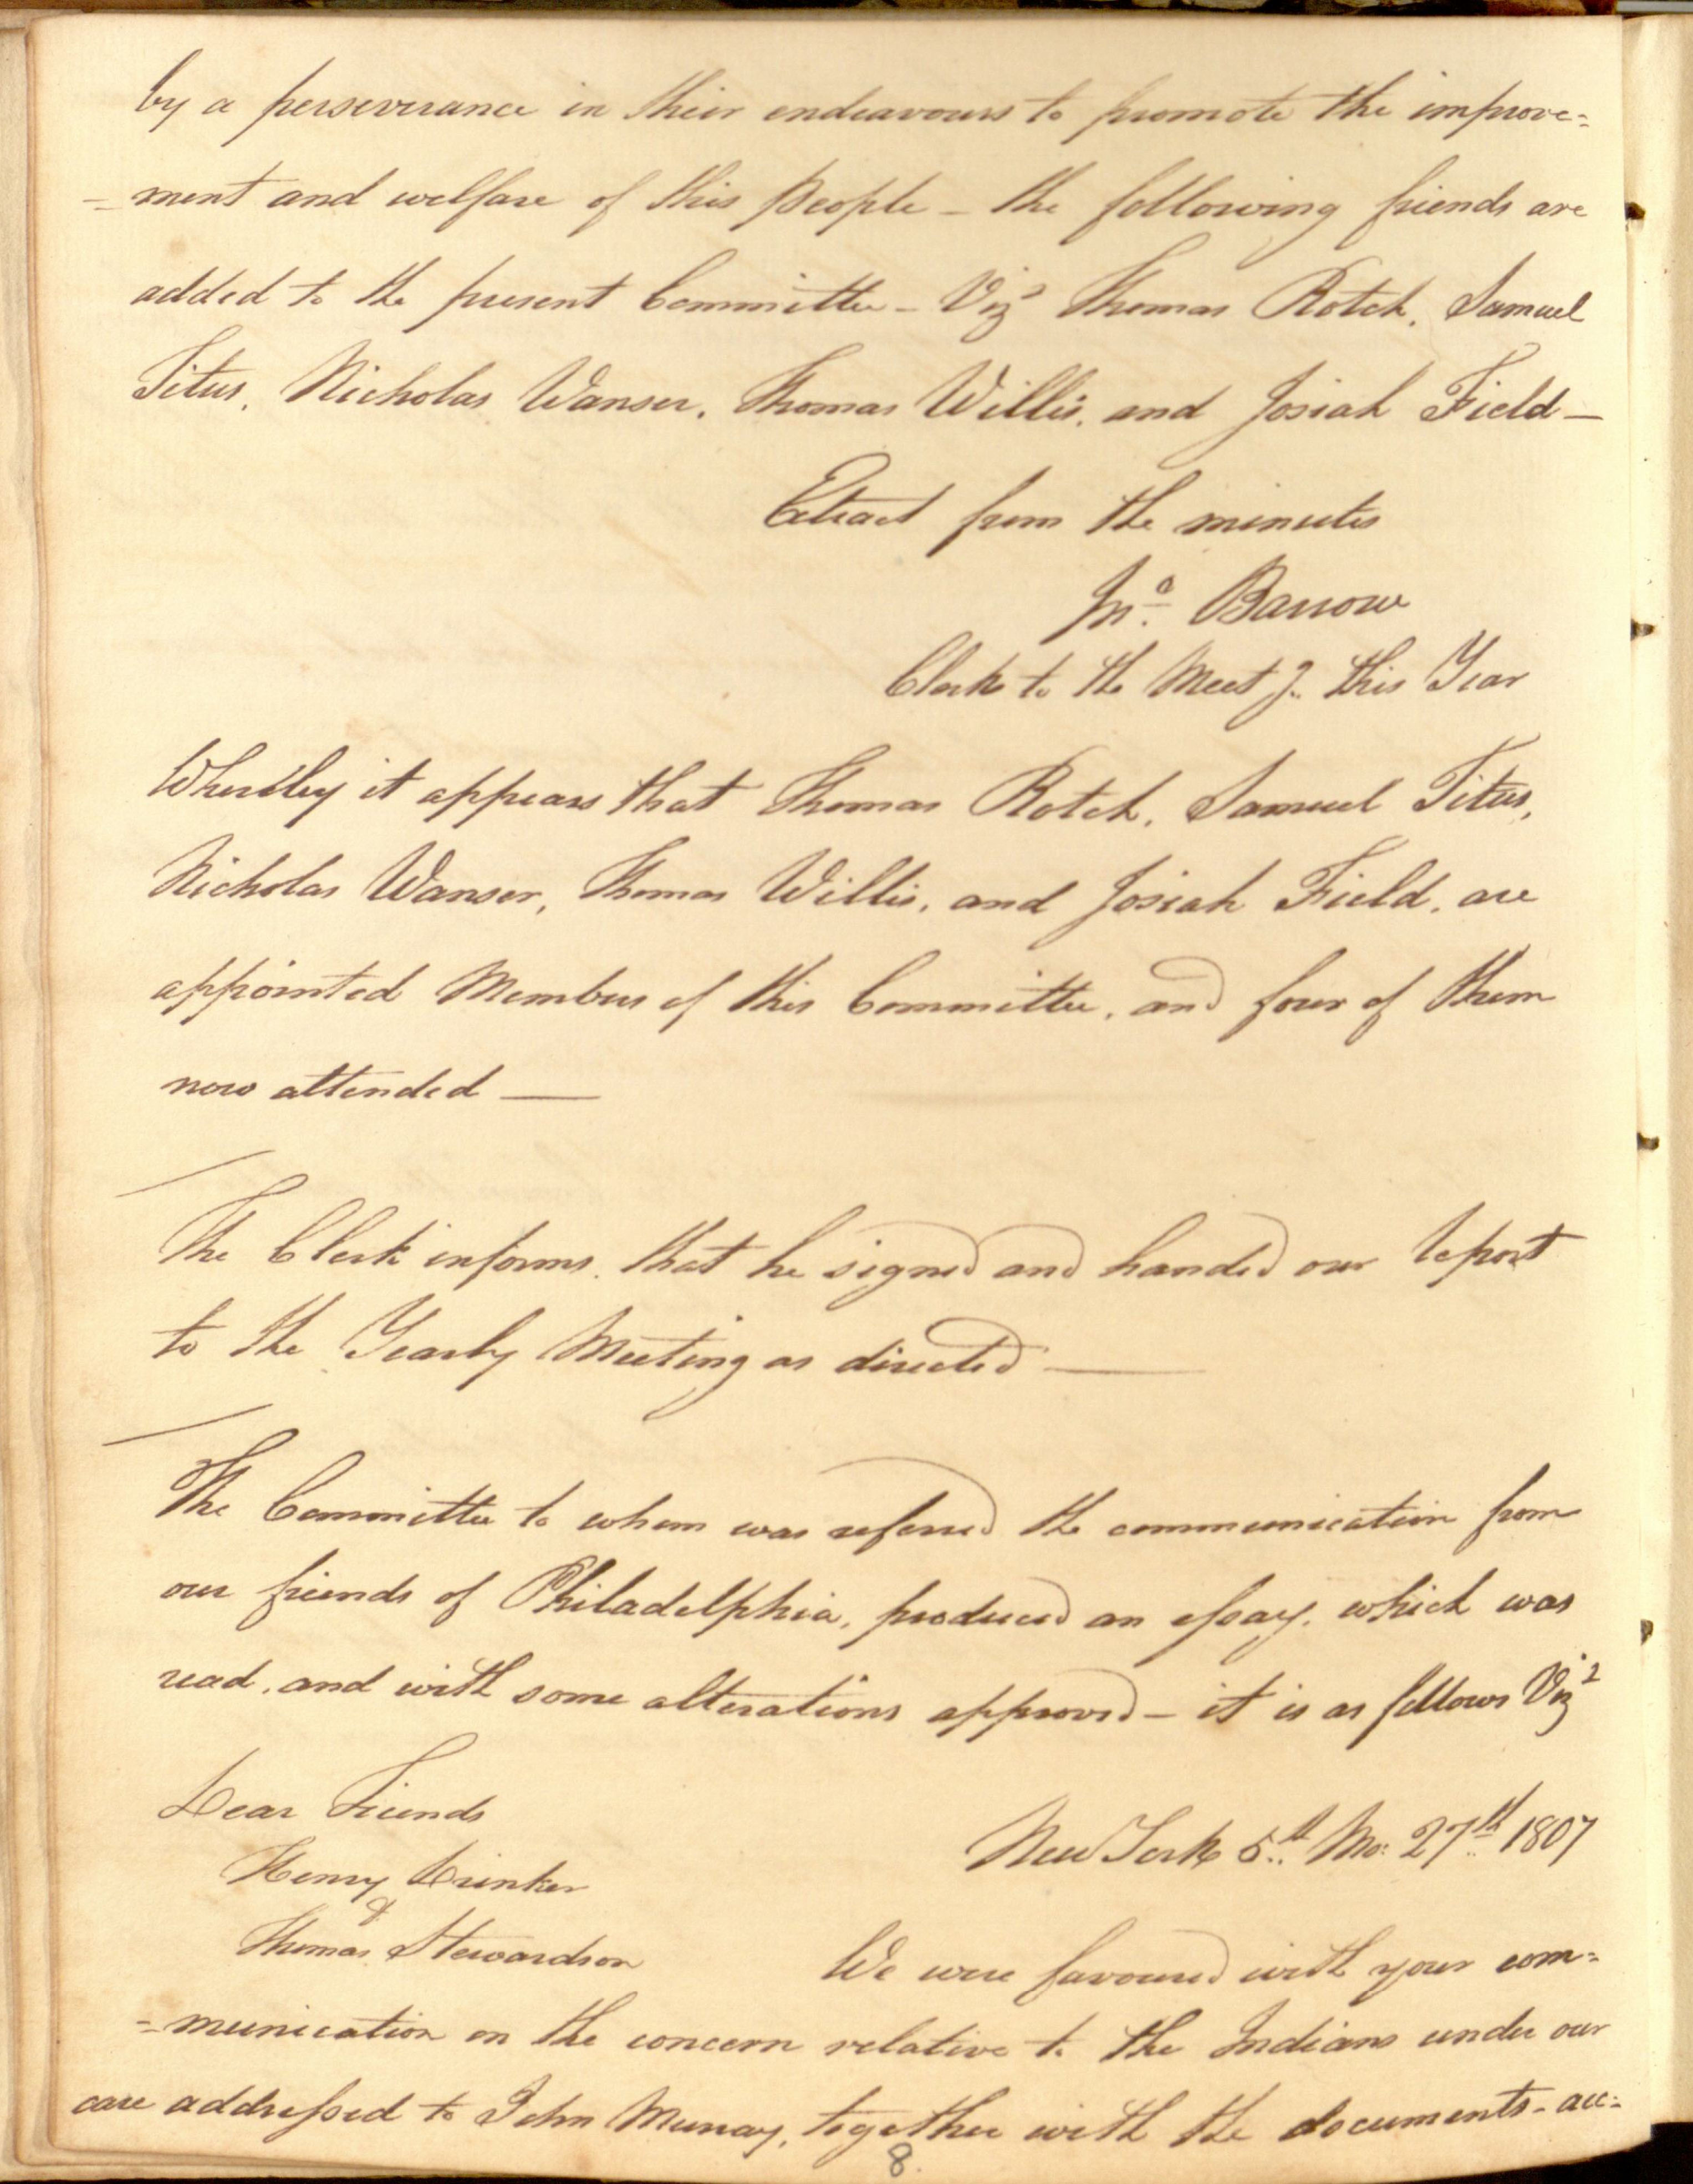 by a perseverance in their endeavours to promote the improve=
=ment and welfare of this People - the following friends are
added to the present Committee - Viz^t Thomas Rotch, Samuel
Titus, Nicholas Wanser, Thomas Willis, and Josiah Field -
Extract from the minutes
Jn^o. Barrow
Clerk to the Meet g. this Year
Whereby it appears that Thomas Rotch, Samuel Titus,
Nicholas Wanser, Thomas Willis, and Josiah Field, are
appointed Members of this Committee, and four of them
now attended —
The Clerk informs, that he signed and handed our report
to the Yearly Meeting as directed —
The Committee to whom was referred the communication from
our friends of Philadelphia, produced an essay, which was
read, and with some alterations approved - it is as follows Viz^t
Dear Friends
New York 5^th Mo: 27^th 1807
Henry Drinker
&
Thomas Stewardson
We were favoured with your com=
=munication on the concern relative to the Indians under our
care addressed to John Murray, together with the documents - acc=
8.